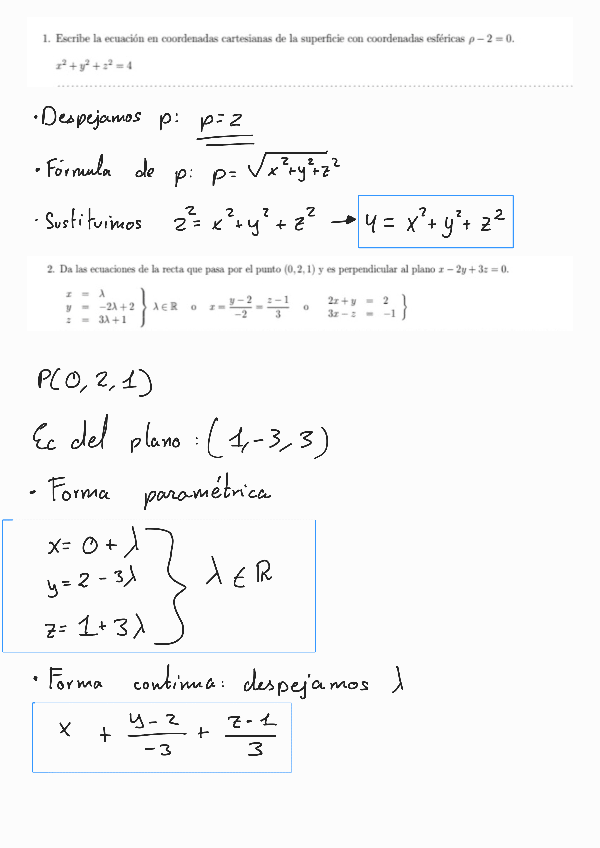 1. Escribe la ecuación en coordenadas cartesianas de la superficie con coordenadas esféricas ρ − 2 = 0.
x² + y² + z² = 4
· Despejamos ρ: ρ = 2
· Fórmula de ρ: ρ = √x²+y²+z²
· Sustituimos 2² = x² + y² + z² → 4 = x² + y² + z²
2. Da las ecuaciones de la recta que pasa por el punto (0, 2, 1) y es perpendicular al plano x − 2y + 3z = 0.
x = λ
y = −2λ + 2 } λ ∈ ℝ o x = (y − 2)/−2 = (z − 1)/3 o 2x + y = 2
z = 3λ + 1 3x − z = −1 }
P(0, 2, 1)
Ec del plano : (1, -3, 3)
· Forma paramétrica
x = 0 + λ
y = 2 - 3λ } λ ∈ ℝ
z = 1 + 3λ
· Forma continua: despejamos λ
x + (y - 2)/-3 + (z - 1)/3